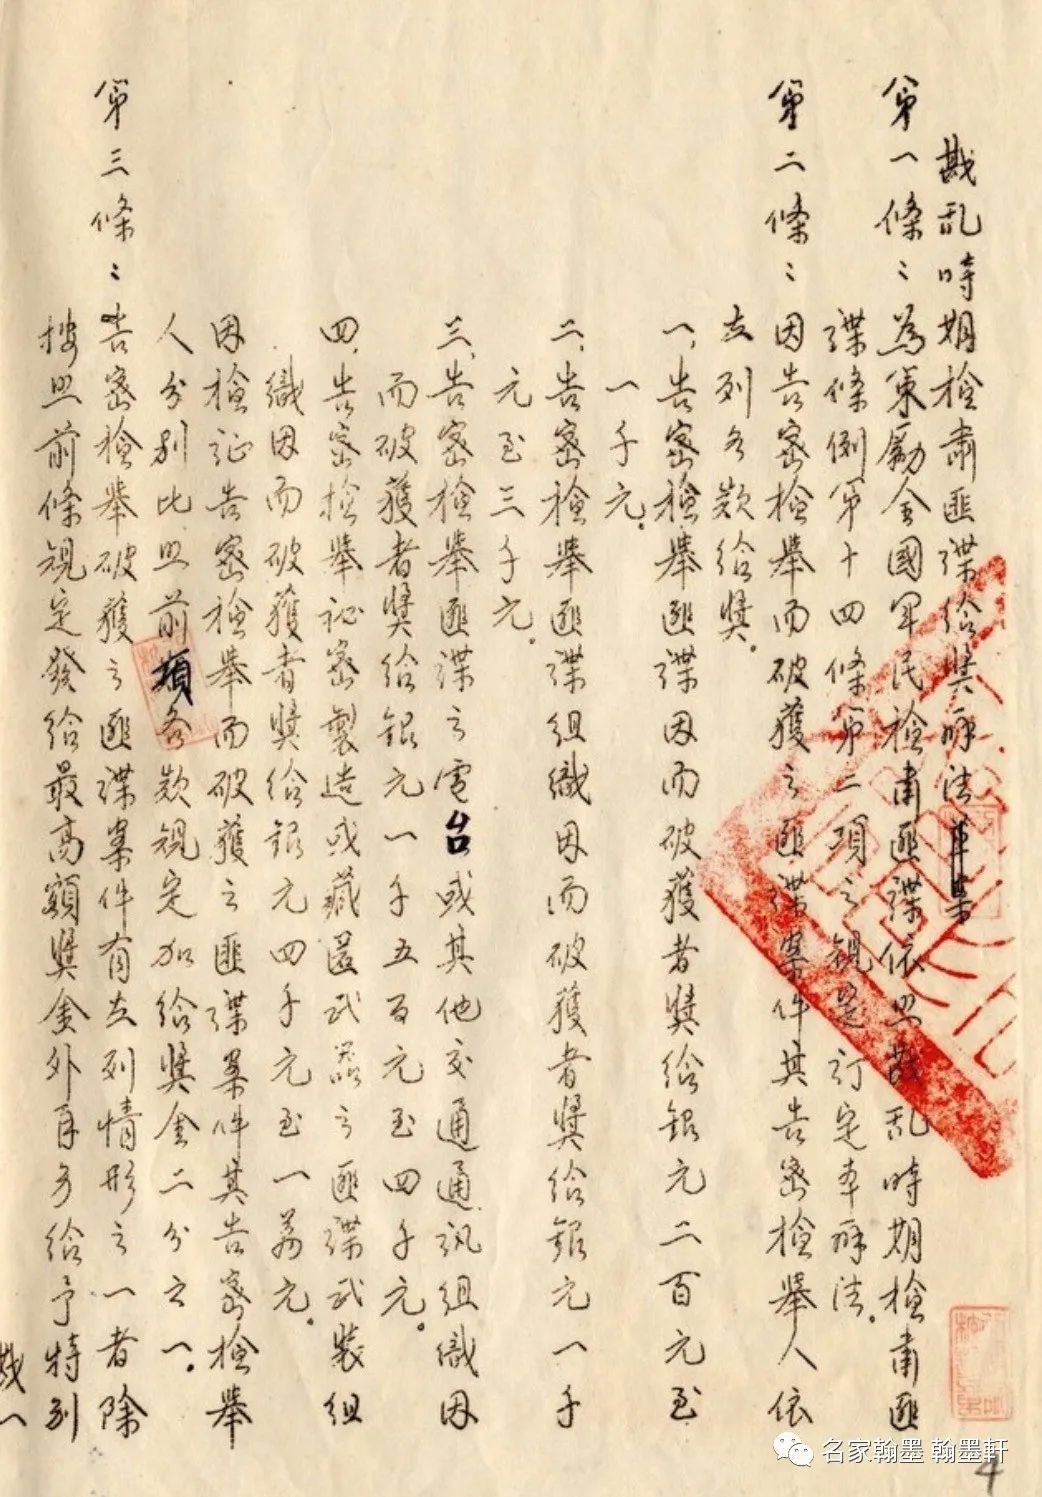 戡乱時期檢肅匪諜給獎辦法草案
第一條：為策勵全國軍民檢肅匪諜依照戡乱時期檢肅匪
諜條例第十四條第二項之規定訂定本辦法。
第二條：因告密檢舉而破獲之匪諜案件其告密檢舉人依
左列各款給獎。
一、告密檢舉匪諜因而破獲者獎給銀元二百元至
一千元。
二、告密檢舉匪諜組織因而破獲者獎給銀元一千
元至三千元。
三、告密檢舉匪諜之電台或其他交通通訊組織因
而破獲者獎給銀元一千五百元至四千元。
四、告密檢舉祕密製造或藏匿武器之匪諜武裝組
織因而破獲者獎給銀元四千元至一萬元。
因檢証告密檢舉而破獲之匪諜案件其告密檢舉
人分别比照前項各款規定加給獎金二分之一。
第三條：告密檢舉破獲之匪諜案件有左列情形之一者除
按照前條規定發給最高額獎金外另給予特别
戡一
4
名家翰墨 翰墨軒